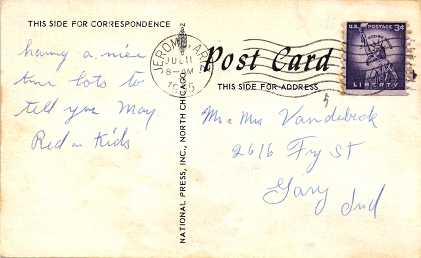 THIS SIDE FOR CORRESPONDENCE
having a nice
time lots to
tell you May
Red & Kids
NATIONAL PRESS, INC., NORTH CHICAGO
JEROME, ARIZ.
JUL 11
8-AM
Post Card
THIS SIDE FOR ADDRESS
U.S. POSTAGE 3¢
LIBERTY
Mr & Mrs Vanderbeck
2616 Fry St
Gary Ind